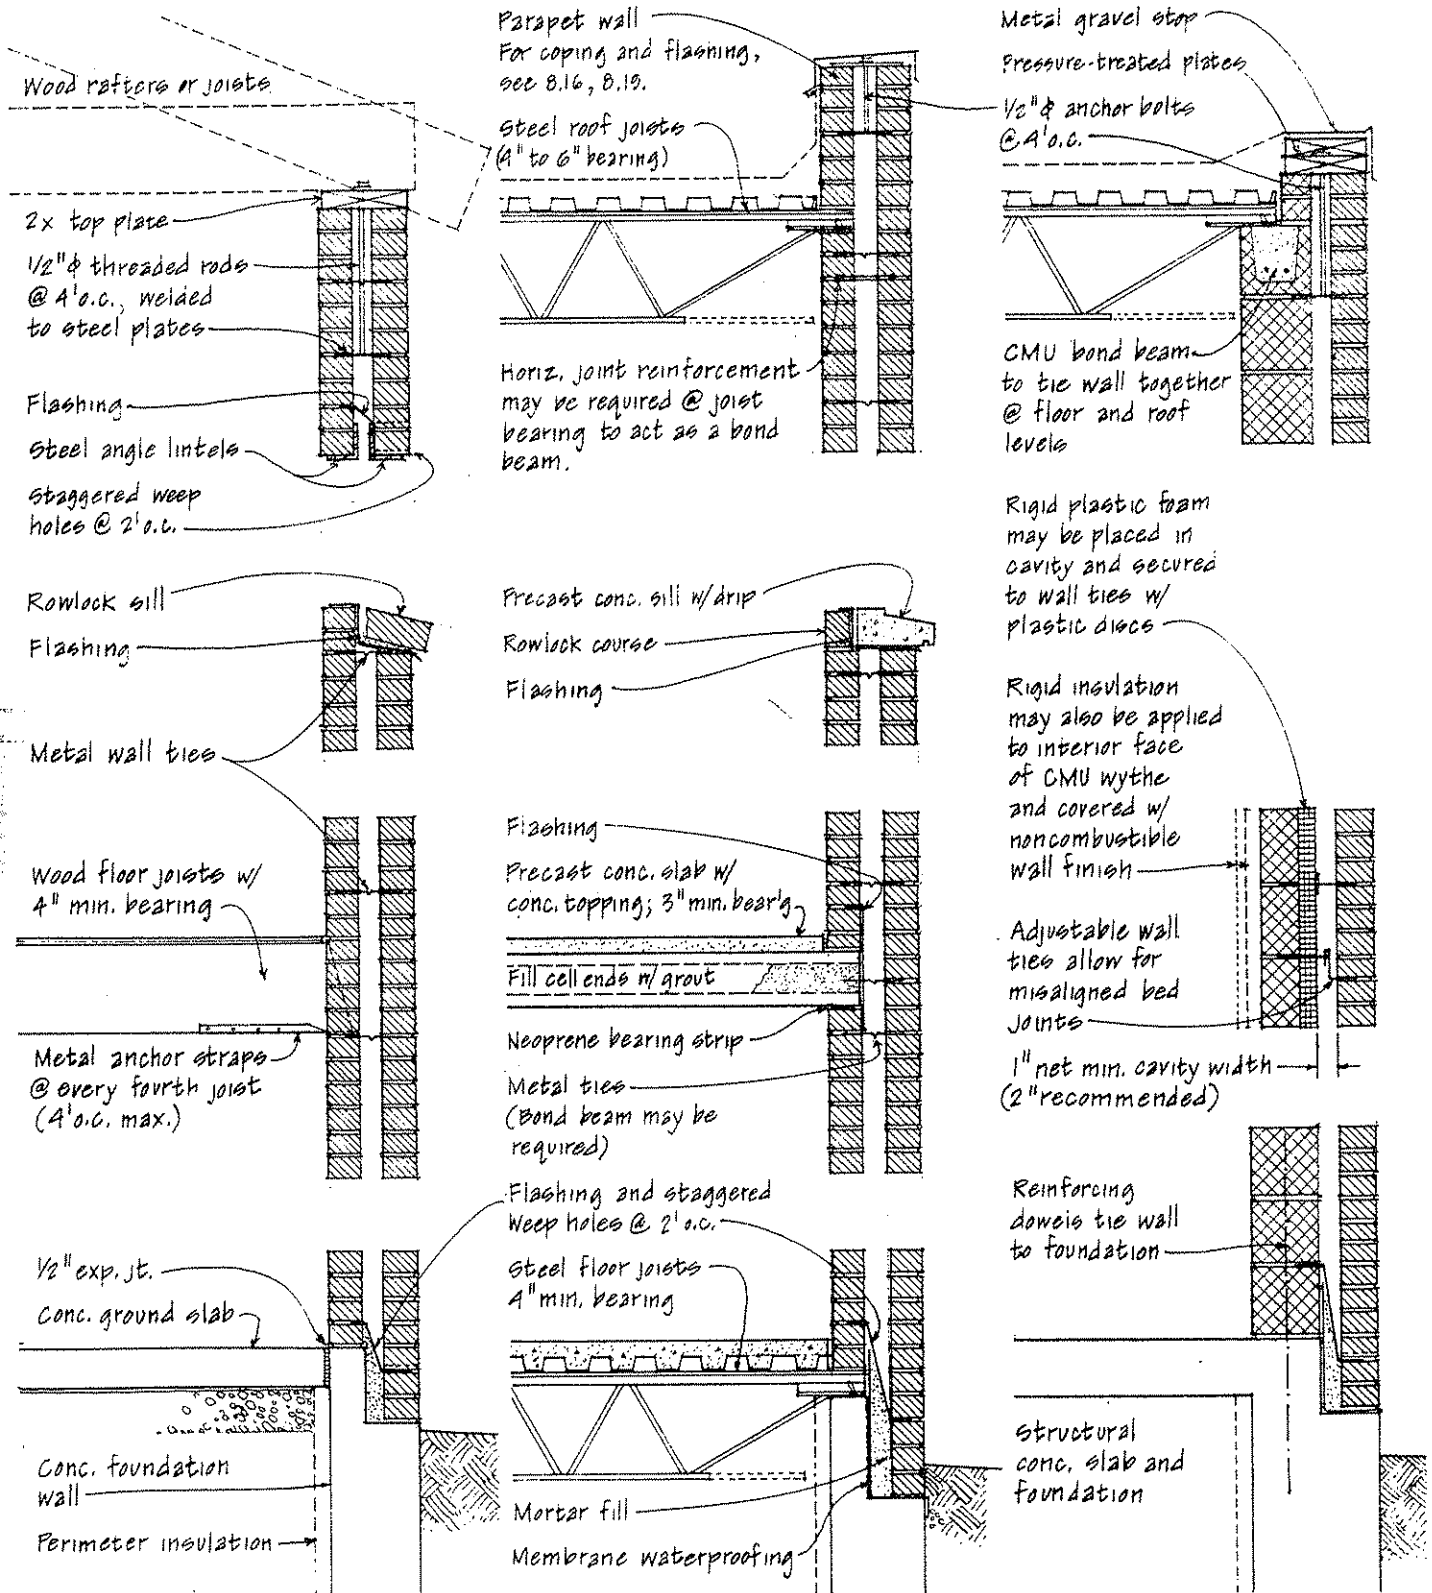 Wood rafters or joists
2x top plate
1/2"ϕ threaded rods
@ 4' o.c., welded
to steel plates
Flashing
Steel angle lintels
Staggered weep
holes @ 2' o.c.
Rowlock sill
Flashing
Metal wall ties
Wood floor joists w/
4" min. bearing
Metal anchor straps
@ every fourth joist
(4' o.c. max.)
1/2" exp. jt.
Conc. ground slab
Conc. foundation
wall
Perimeter insulation
Parapet wall
For coping and flashing,
see 8.16, 8.19.
Steel roof joists
(4" to 6" bearing)
Horiz. joint reinforcement
may be required @ joist
bearing to act as a bond
beam.
Precast conc. sill w/drip
Rowlock course
Flashing
Flashing
Precast conc. slab w/
conc. topping; 3" min. bear'g
Fill cell ends w/ grout
Neoprene bearing strip
Metal ties
(Bond beam may be
required)
Flashing and staggered
Weep holes @ 2' o.c.
Steel floor joists
4" min. bearing
Mortar fill
Membrane waterproofing
Metal gravel stop
Pressure-treated plates
1/2"ϕ anchor bolts
@ 4' o.c.
CMU bond beam
to tie wall together
@ floor and roof
levels
Rigid plastic foam
may be placed in
cavity and secured
to wall ties w/
plastic discs
Rigid insulation
may also be applied
to interior face
of CMU wythe
and covered w/
noncombustible
wall finish
Adjustable wall
ties allow for
misaligned bed
joints
1" net min. cavity width
(2" recommended)
Reinforcing
dowels tie wall
to foundation
Structural
conc. slab and
foundation